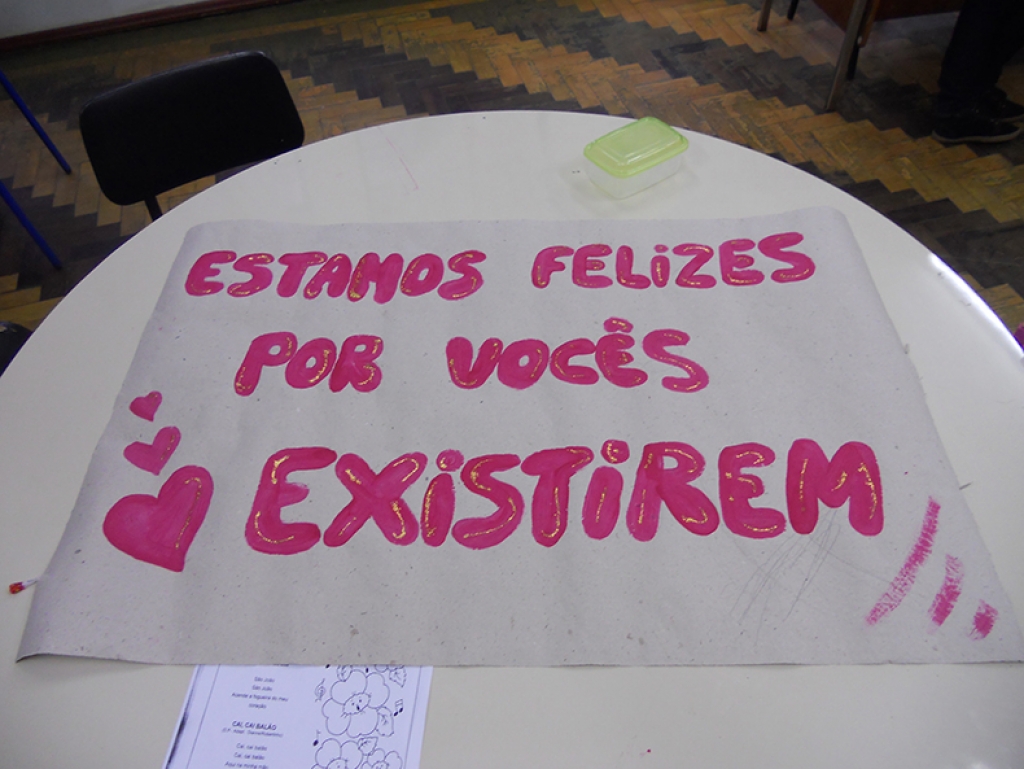 ESTAMOS FELiZES
POR VOCÊS
EXiSTiREM
São João
São João
Acende a fogueira do meu
coração.
CAI, CAI BALÃO
Cai, cai balão
Cai, cai balão
Aqui na minha mão